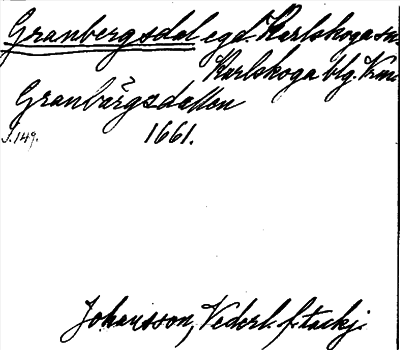 Granbergsdal egd. Karlskoga sn.
Karlskoga blg. Vrml
Granbärgsdallen
S. 149. 1661.
Johansson, Vederl. f. tackj.